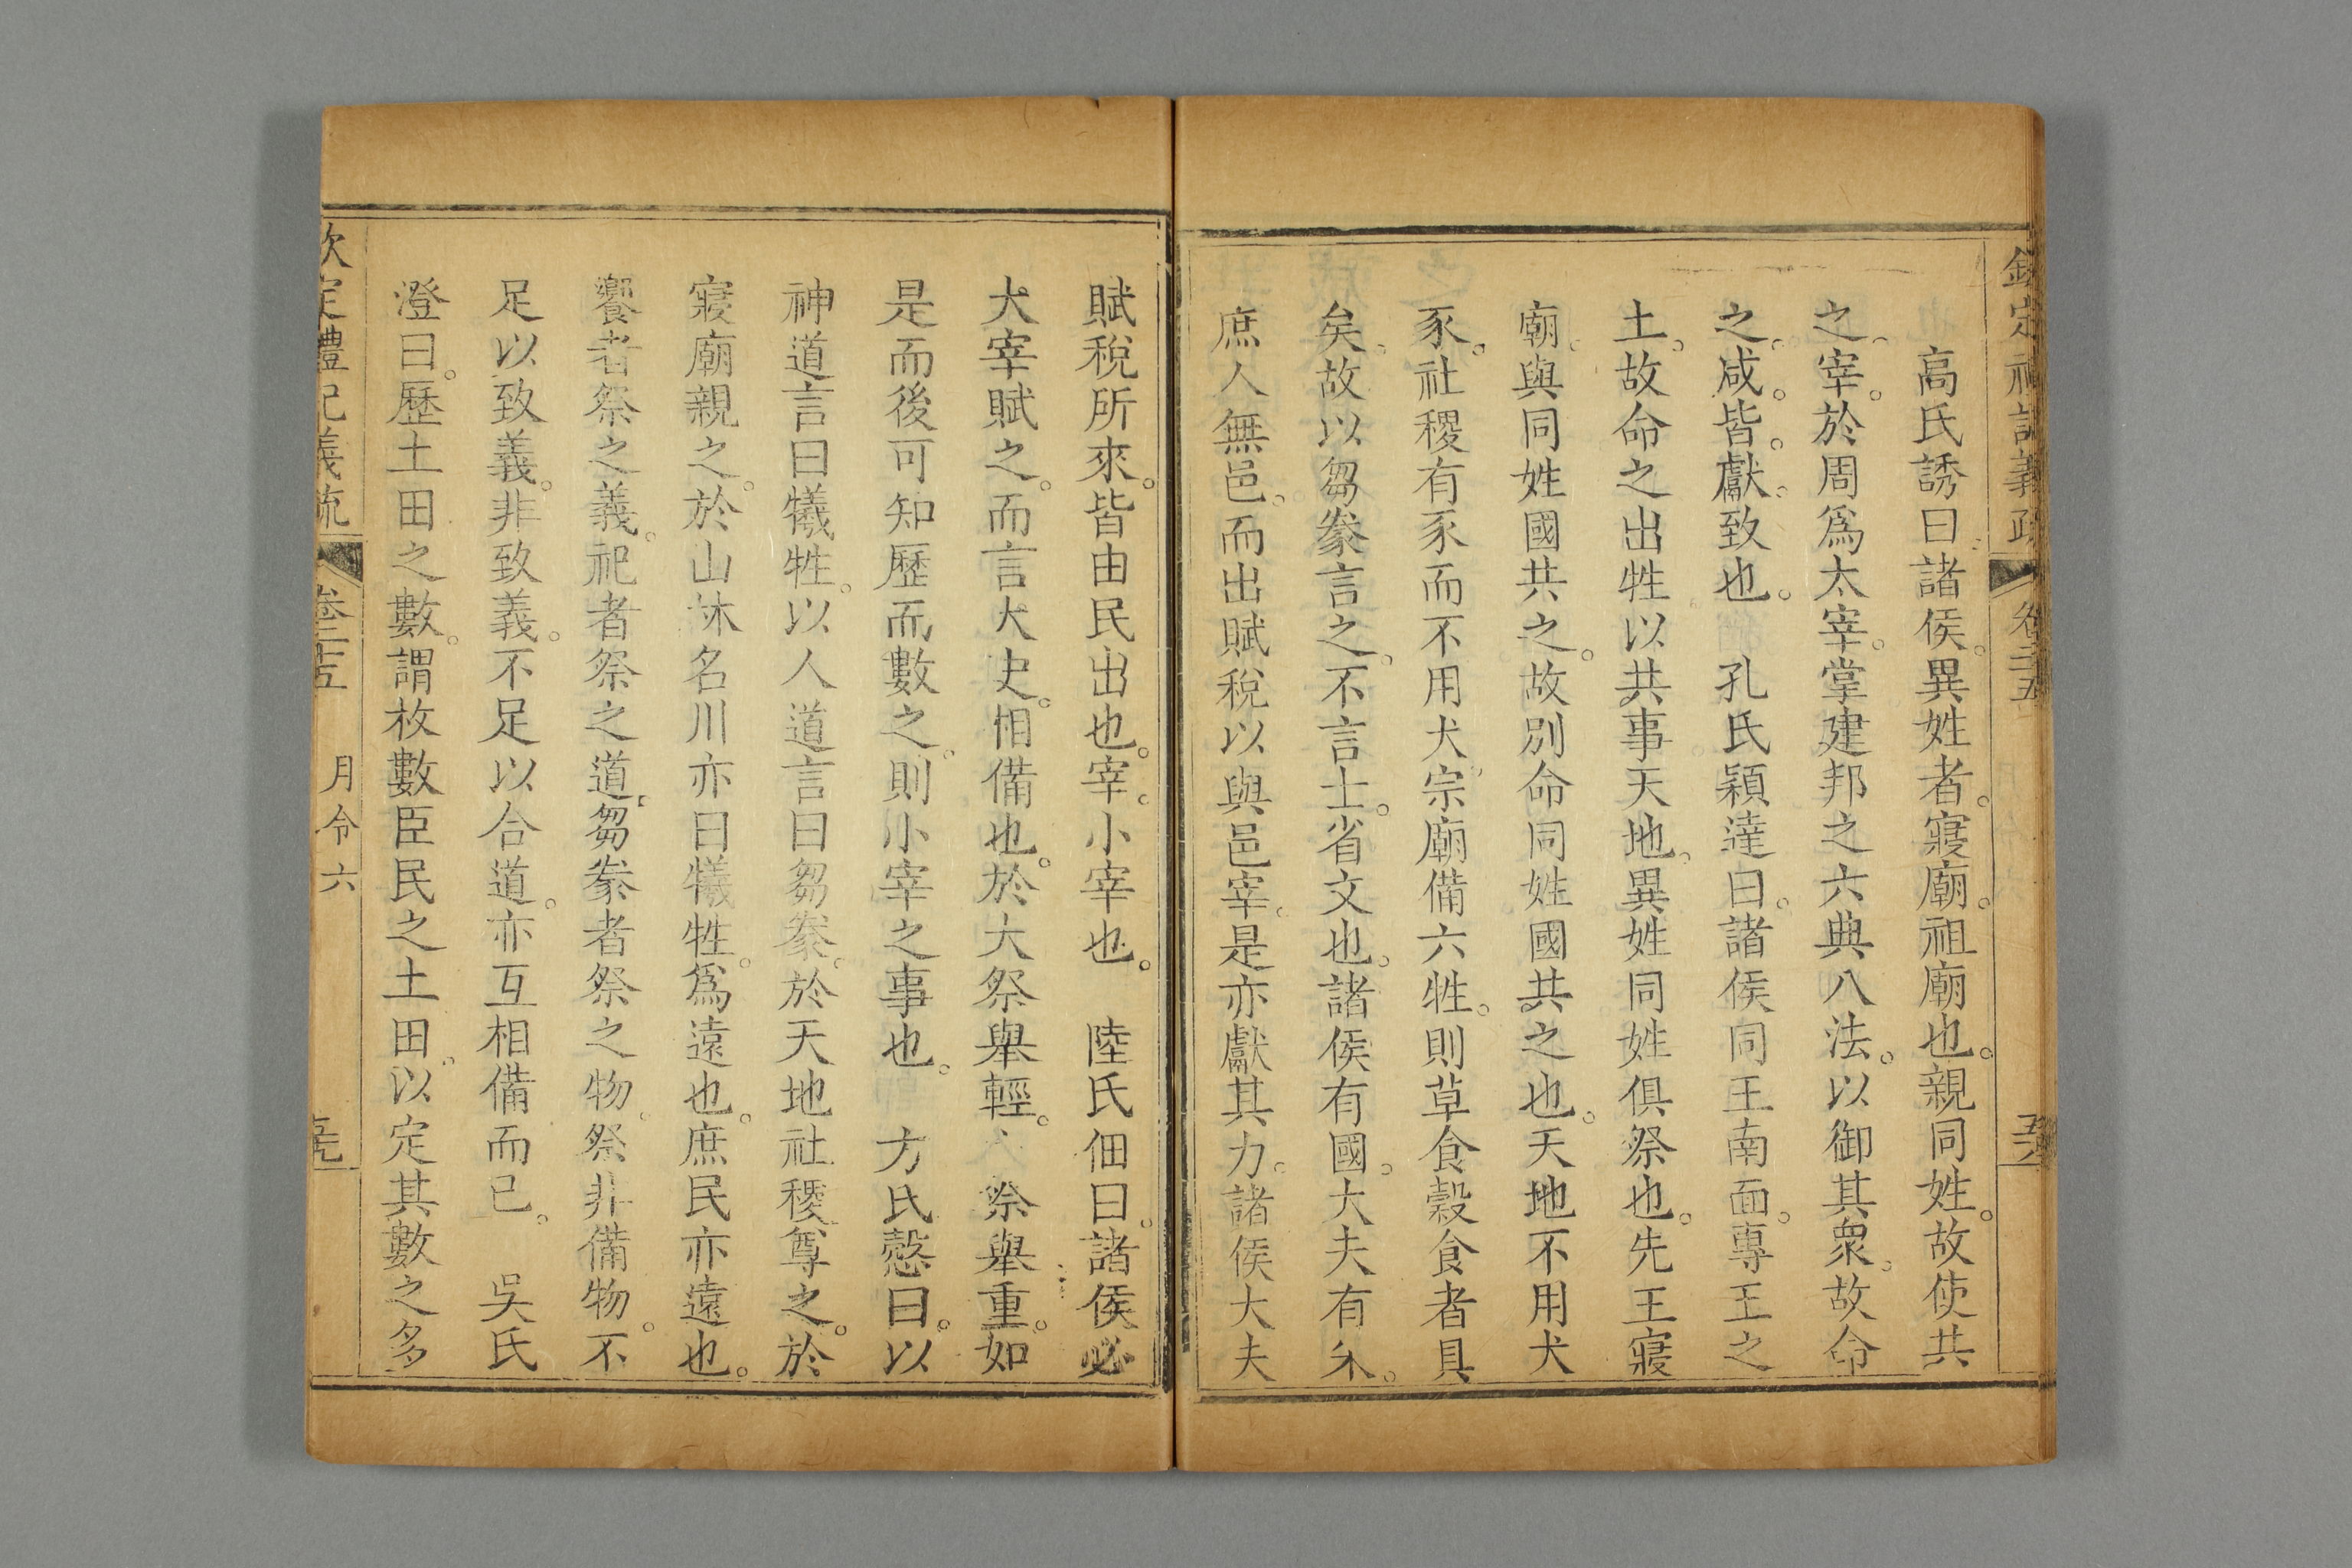 欽定禮記義疏 卷二十五
高氏誘曰諸侯。異姓者。寢廟。祖廟也。親同姓。故使共
之。宰。於周爲太宰。掌建邦之六典八法。以御其衆。故命
之。咸。皆。獻。致也。 孔氏穎達曰。諸侯同王南面。專王之
土。故命之出牲以共事天地。異姓同姓俱祭也。先王寢
廟。與同姓國共之。故別命同姓國共之也。天地不用犬
豕。社稷有豕而不用犬。宗廟備六牲。則草食穀食者具
矣。故以芻豢言之。不言士。省文也。諸侯有國。大夫有采。
庶人無邑。而出賦稅以與邑宰。是亦獻其力。諸侯大夫
賦稅所來。皆由民出也。宰。小宰也。 陸氏佃曰。諸侯必
大宰賦之。而言大史。相備也。於大祭舉輕。祭舉重。如
是而後可知歷而數之。則小宰之事也。 方氏慤曰。以
神道言曰犧牲。以人道言曰芻豢。於天地社稷尊之。於
寢廟親之。於山林名川亦曰犧牲。爲遠也。庶民亦遠也。
饗者祭之義。祀者祭之道。芻豢者祭之物。祭非備物。不
足以致義。非致義。不足以合道。亦互相備而已。 吳氏
澄曰。歷土田之數。謂枚數臣民之土田。以定其數之多
欽定禮記義疏 卷二十五 月令六